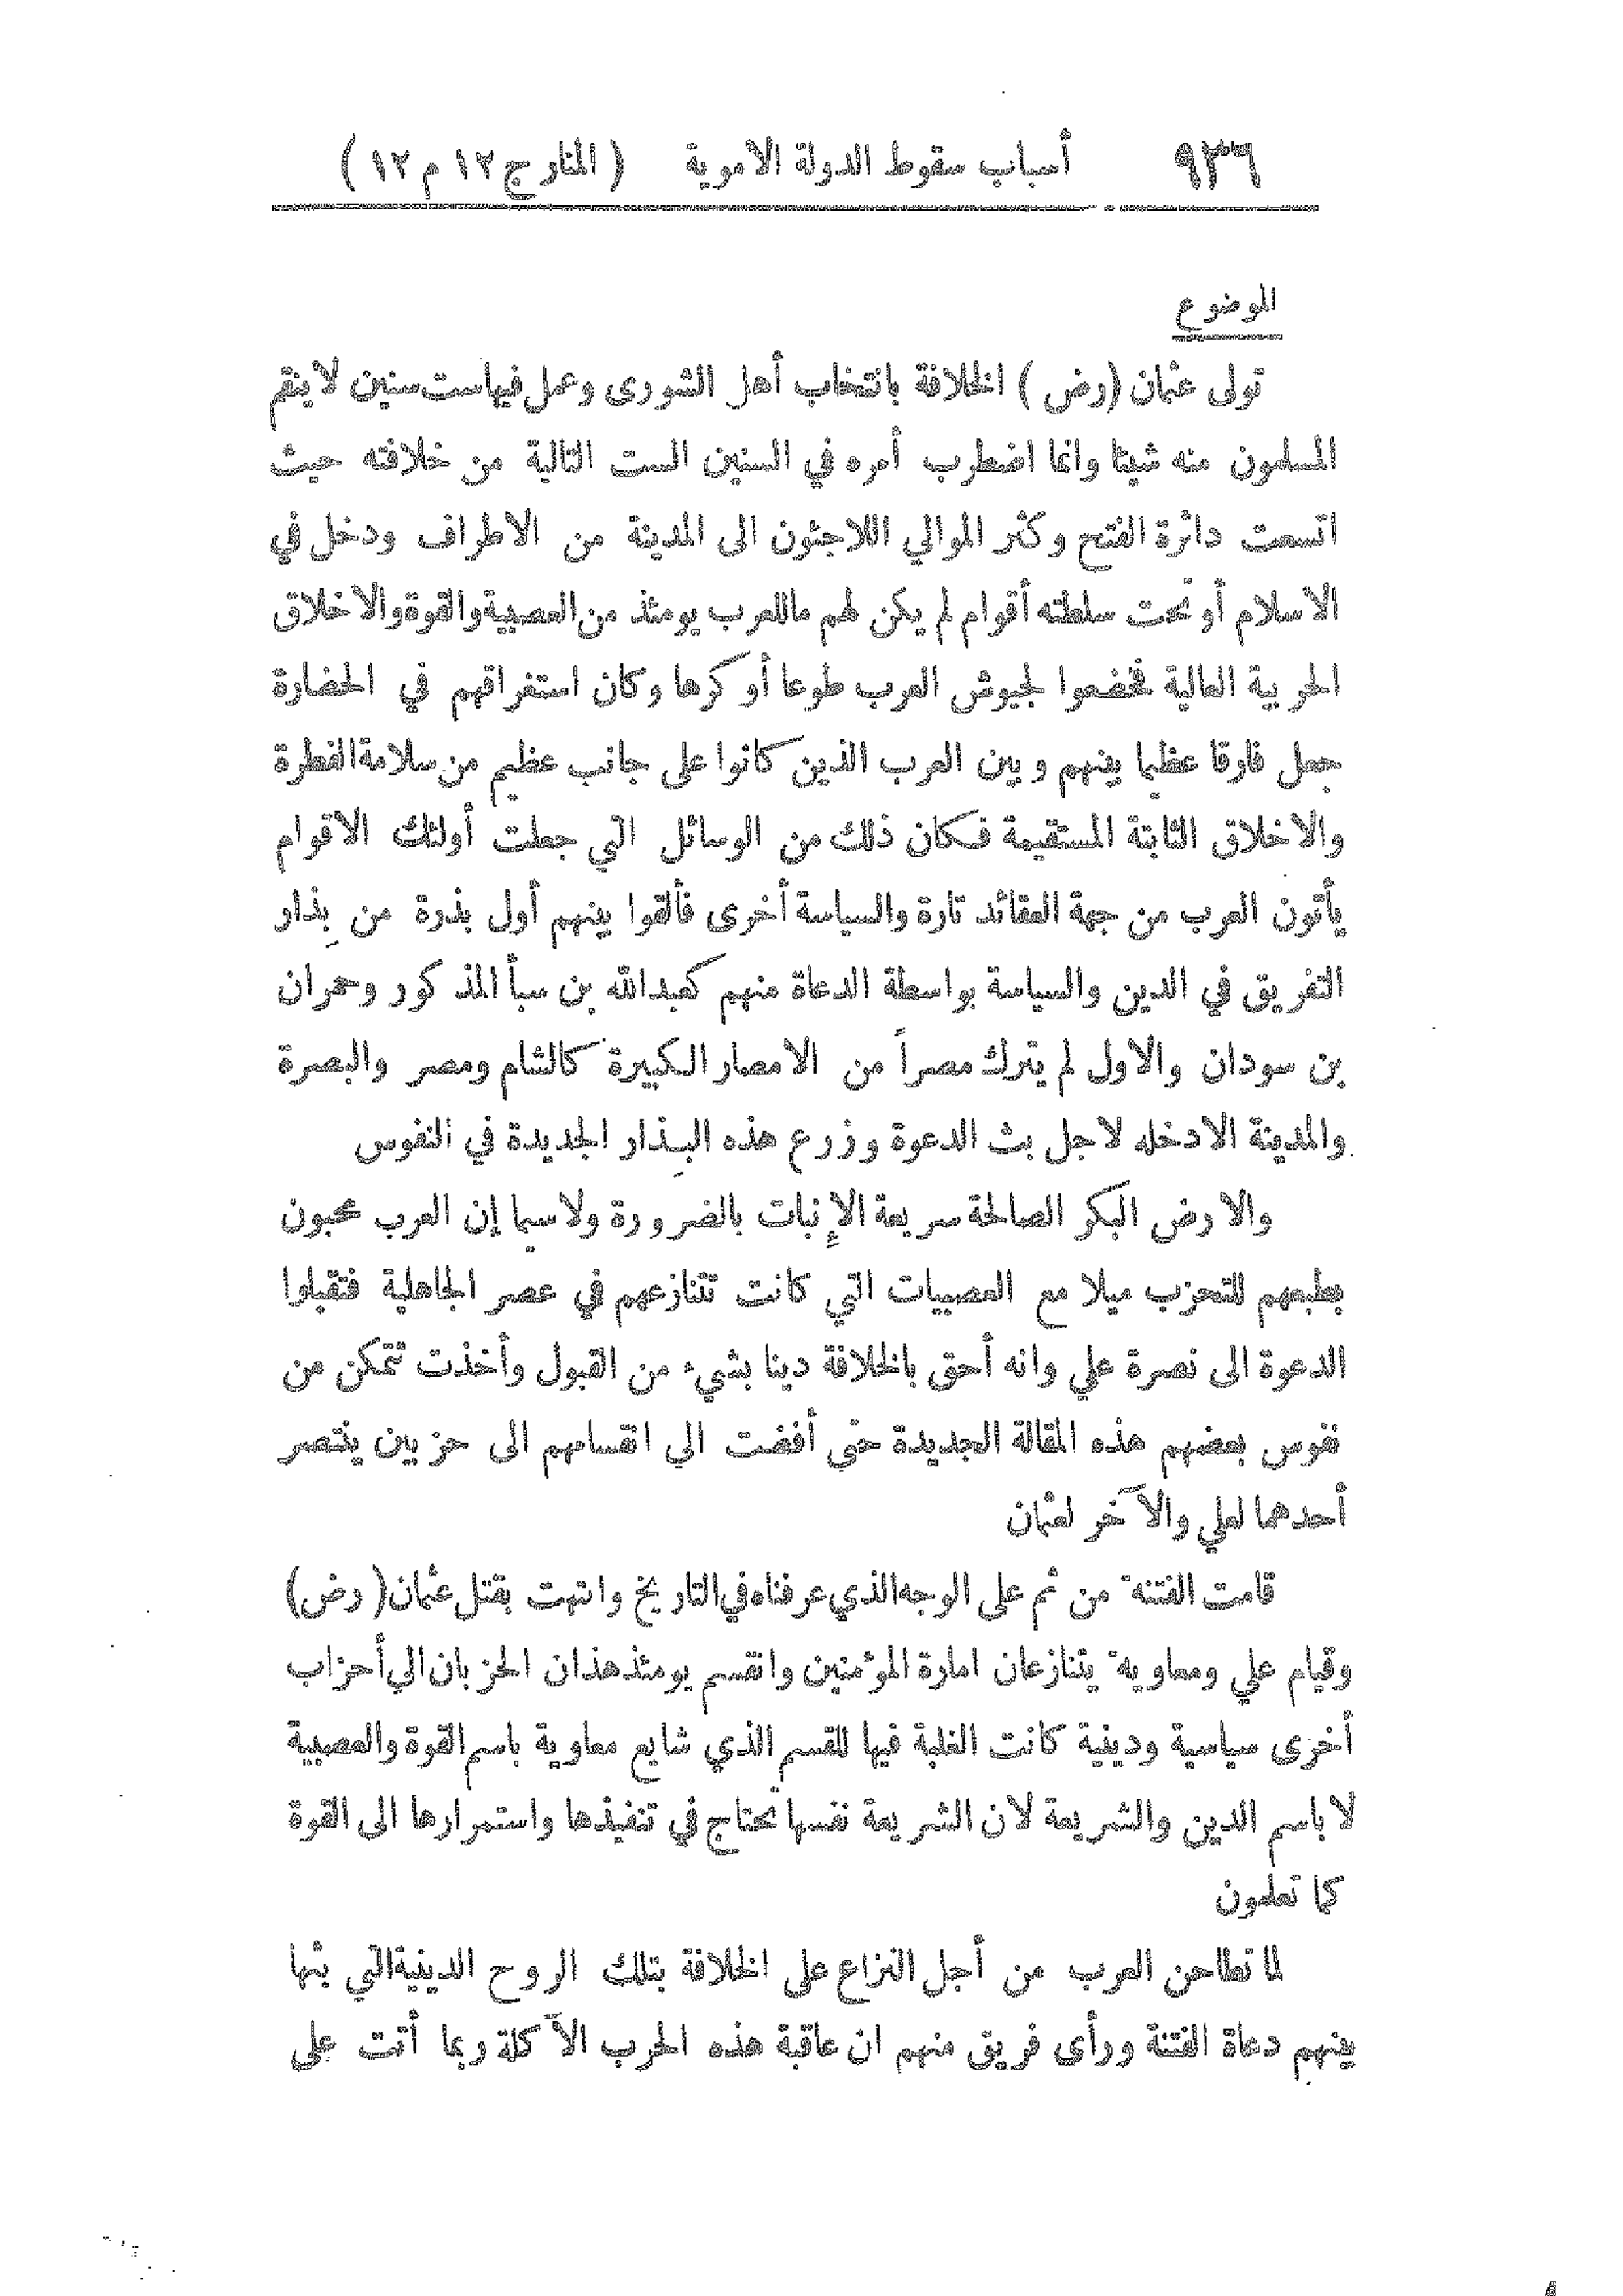 ٩٣٦ أسباب سقوط الدولة الاموية ( المنارج ١٢ م ١٢ )
الموضوع
تولى عثمان (رض ) الخلافة بانتخاب أهل الشورى وعمل فيها ست سنين لا ينقم
المسلمون منه شيئا وانما اضطرب أمره في السنين الست التالية من خلافته حيث
اتسعت دائرة الفتح وكثر الموالي اللاجئون الى المدينة من الاطراف ودخل في
الاسلام أو تحت سلطته أقوام لم يكن لهم ماللعرب يومئذ من العصبية والقوة والاخلاق
الحربية العالية فخضعوا لجيوش العرب طوعا أو كرها وكان استغراقهم في الحضارة
جعل فارقا عظيما بينهم وبين العرب الذين كانوا على جانب عظيم من سلامة الفطرة
والاخلاق الثابتة المستقيمة فكان ذلك من الوسائل التي جعلت أولئك الاقوام
يأتون العرب من جهة العقائد تارة والسياسة أخرى فألقوا بينهم أول بذرة من بِذار
التفريق في الدين والسياسة بواسطة الدعاة منهم كعبدالله بن سبأ المذكور وحمران
بن سودان والاول لم يترك مصراً من الامصار الكبيرة كالشام ومصر والبصرة
والمدينة الادخله لاجل بث الدعوة وزرع هذه البِذار الجديدة في النفوس
والارض البكر الصالحة سريعة الإنبات بالضرورة ولاسيما إن العرب محبون
بطبعهم للتحزب ميلا مع العصبيات التي كانت تتنازعهم في عصر الجاهلية فتقبلوا
الدعوة الى نصرة علي وانه أحق بالخلافة دينا بشيء من القبول وأخذت تتمكن من
نفوس بعضهم هذه المقالة الجديدة حتى أفضت الي انقسامهم الى حزبين ينتصر
أحدهما لعلي والآخر لعثمان
قامت الفتنة من ثم على الوجه الذي عرفناه في التاريخ وانتهت بقتل عثمان ( رض )
وقيام علي ومعاوية يتنازعان امارة المؤمنين وانقسم يومئذ هذان الحزبان الي أحزاب
أخرى سياسية ودينية كانت الغلبة فيها للقسم الذي شايع معاوية باسم القوة والعصبية
لا باسم الدين والشريعة لان الشريعة نفسها تحتاج في تنفيذها واستمرارها الى القوة
كما تعلمون
لما تطاحن العرب من أجل النزاع على الخلافة بتلك الروح الدينية التي بثها
بينهم دعاة الفتنة ورأى فريق منهم ان عاقبة هذه الحرب الآكلة ربما أتت على